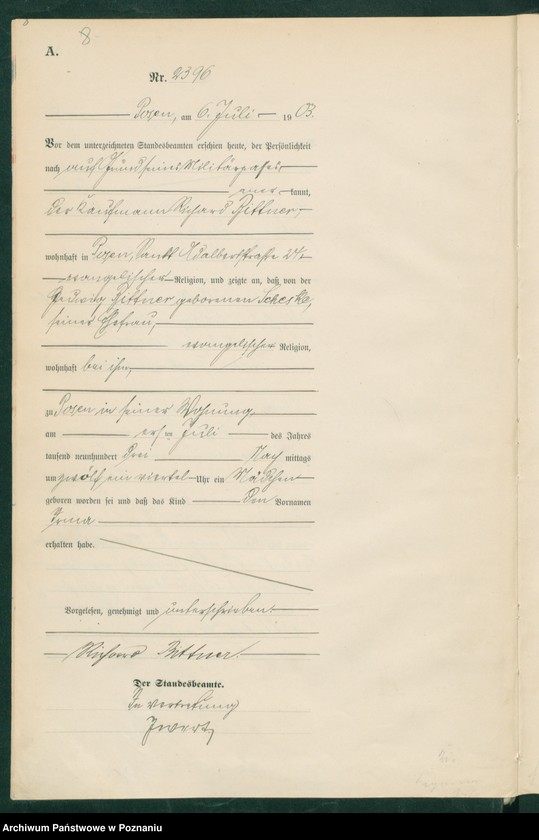 8
A.
Nr. 2396
Posen, am 6. Juli 1903.
Vor dem unterzeichneten Standesbeamten erschien heute, der Persönlichkeit
nach auf Grund seines Militärpasses
aner kannt,
der Kaufmann Richard Bittner,
wohnhaft in Posen, Sankt Adalbertstraße 24
evangelischer Religion, und zeigte an, daß von der
Hedwig Bittner geborenen Scheske,
seiner Ehefrau,
evangelischer Religion,
wohnhaft bei ihm,
zu Posen in seiner Wohnung
am ersten Juli des Jahres
tausend neunhundert drei Nach mittags
um zwölf ein viertel Uhr ein Mädchen
geboren worden sei und daß das Kind den Vornamen
Irma
erhalten habe.
Vorgelesen, genehmigt und unterschrieben
Richard Bittner.
Der Standesbeamte.
In Vertretung
Archiwum Państwowe w Poznaniu